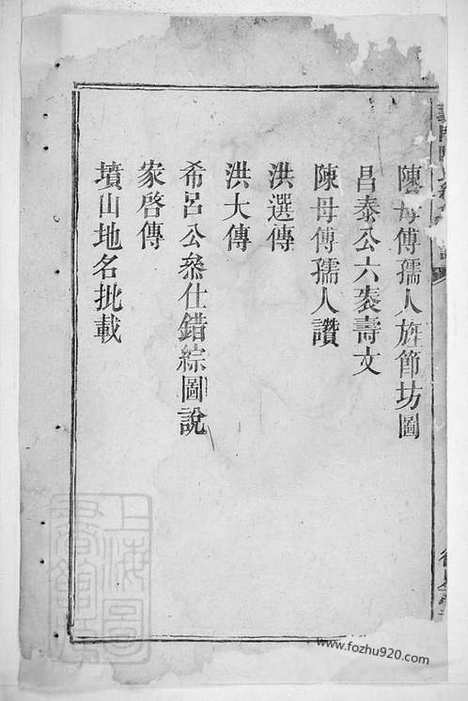 陳母傅孺人旌節坊圖
昌泰公六袠壽文
陳母傅孺人讚
洪選傳
洪大傳
希呂公叅仕錯綜圖說
家啓傳
墳山地名批載
上海圖
www.fozhu920.com